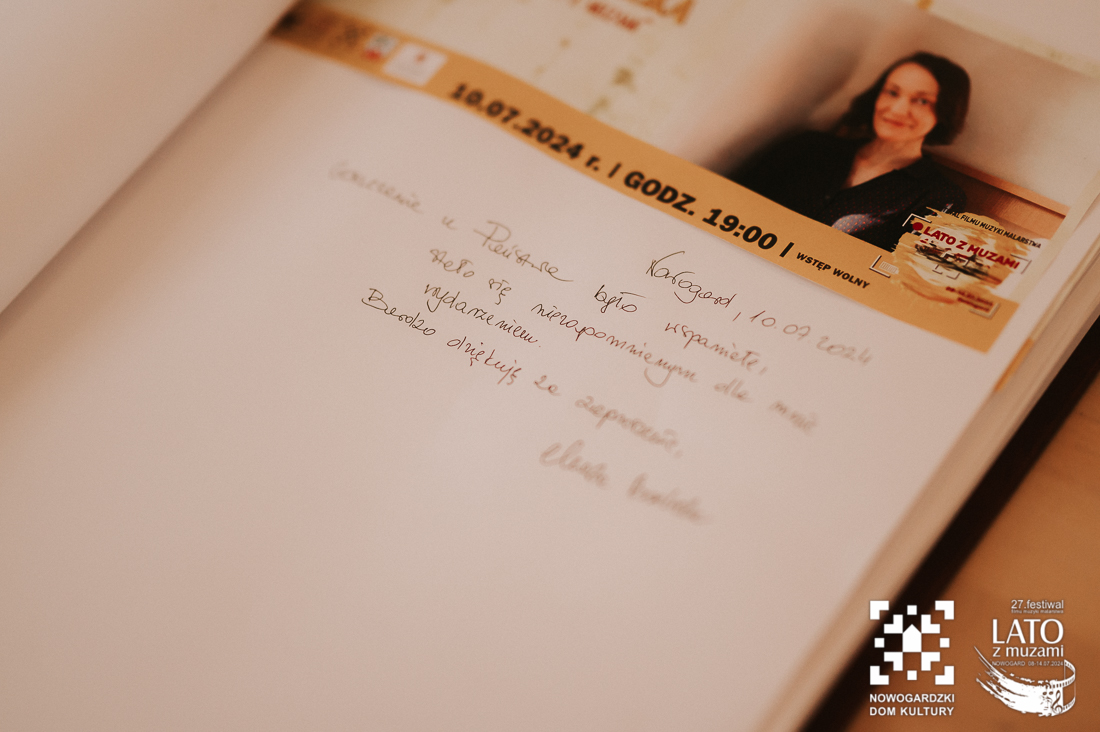 MUZAMI
10.07.2024 r. | GODZ. 19:00 | WSTĘP WOLNY
FILMU MUZYKI MALARSTWA
LATO Z MUZAMI
Nowogard, 10.07.2024
u Państwa było wspaniałe,
stało się niezapomnianym dla mnie
wydarzeniem.
Bardzo dziękuję za zaproszenie,
NOWOGARDZKI
DOM KULTURY
27.festiwal
filmu muzyki malarstwa
LATO
z muzami
NOWOGARD 08-14.07.2024